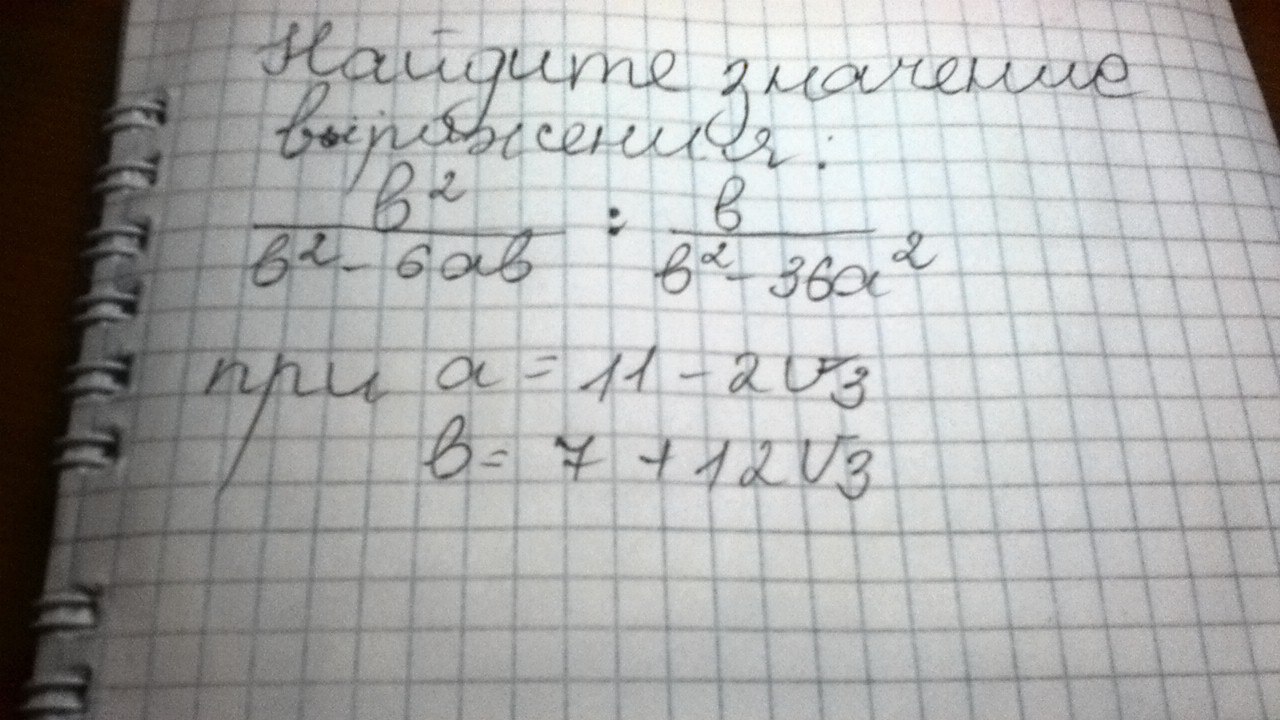 Найдите значение
выражения:
в² / (в² - 6ав) : в / (в² - 36а²)
при а = 11 - 2√3
в = 7 + 12√3